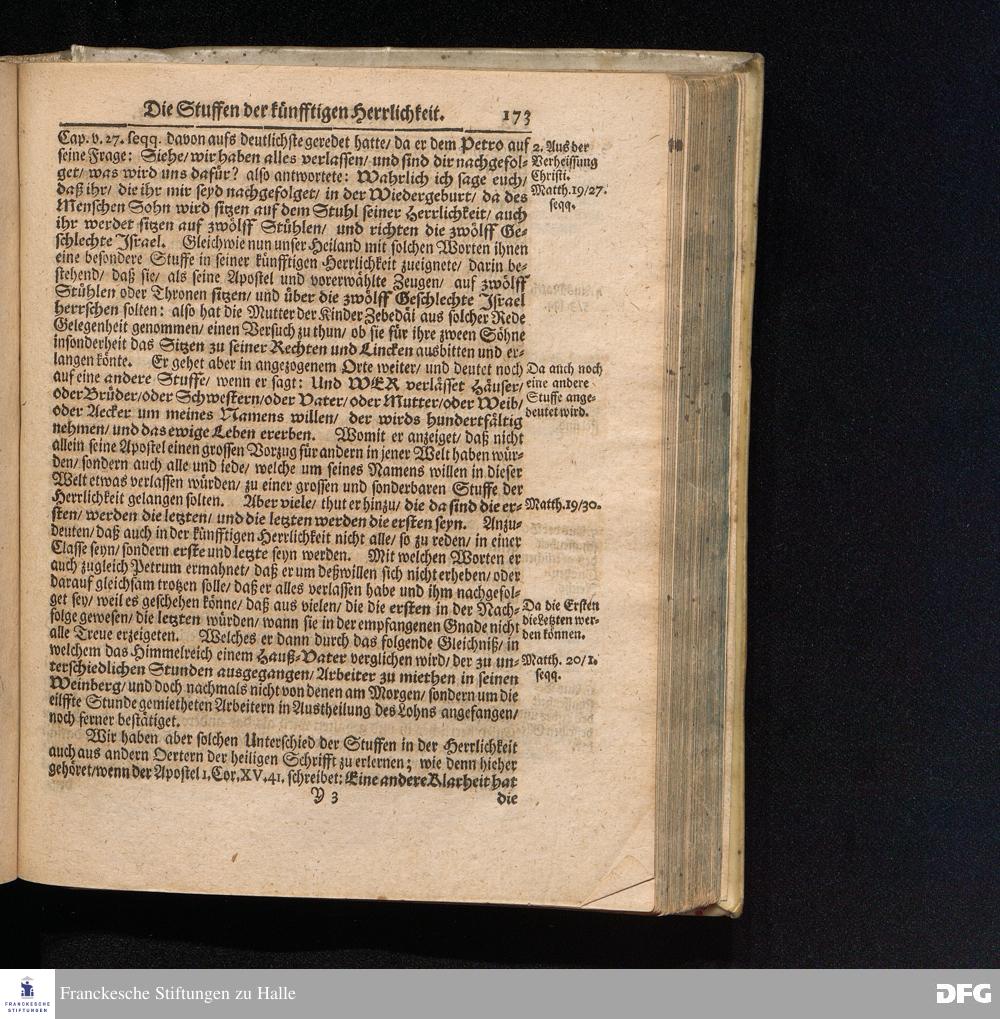 Die Stuffen der künfftigen Herrlichkeit. 173
Cap. v. 27. seqq. davon aufs deutlichste geredet hatte/ da er dem Petro auf
seine Frage: Siehe/ wir haben alles verlassen/ und sind dir nachgefol-
get/ was wird uns dafür? also antwortete: Wahrlich ich sage euch/
daß ihr/ die ihr mir seyd nachgefolget/ in der Wiedergeburt/ da des
Menschen Sohn wird sitzen auf dem Stuhl seiner Herrlichkeit/ auch
ihr werdet sitzen auf zwölff Stühlen/ und richten die zwölff Ge-
schlechte Israel. Gleichwie nun unser Heiland mit solchen Worten ihnen
eine besondere Stuffe in seiner künfftigen Herrlichkeit zueignete/ darin be-
stehend/ daß sie/ als seine Apostel und vorerwählte Zeugen/ auf zwölff
Stühlen oder Thronen sitzen/ und über die zwölff Geschlechte Israel
herrschen solten: also hat die Mutter der Kinder Zebedäi aus solcher Rede
Gelegenheit genommen/ einen Versuch zu thun/ ob sie für ihre zween Söhne
insonderheit das Sitzen zu seiner Rechten und Lincken ausbitten und er-
langen könte. Er gehet aber in angezogenem Orte weiter/ und deutet noch
auf eine andere Stuffe/ wenn er sagt: Und WER verlässet Häuser/
oder Brüder/ oder Schwestern/ oder Vater/ oder Mutter/ oder Weib/
oder Aecker um meines Namens willen/ der wirds hundertfältig
nehmen/ und das ewige Leben ererben. Womit er anzeiget/ daß nicht
allein seine Apostel einen grossen Vorzug für andern in jener Welt haben wür-
den/ sondern auch alle und iede/ welche um seines Namens willen in dieser
Welt etwas verlassen würden/ zu einer grossen und sonderbaren Stuffe der
Herrlichkeit gelangen solten. Aber viele/ thut er hinzu/ die da sind die er-
sten/ werden die letzten/ und die letzten werden die ersten seyn. Anzu-
deuten/ daß auch in der künfftigen Herrlichkeit nicht alle/ so zu reden/ in einer
Classe seyn/ sondern erste und letzte seyn werden. Mit welchen Worten er
auch zugleich Petrum ermahnet/ daß er um deßwillen sich nicht erheben/ oder
darauf gleichsam trotzen solle/ daß er alles verlassen habe und ihm nachgefol-
get sey/ weil es geschehen könne/ daß aus vielen/ die die ersten in der Nach-
folge gewesen/ die letzten würden/ wann sie in der empfangenen Gnade nicht
alle Treue erzeigeten. Welches er dann durch das folgende Gleichniß/ in
welchem das Himmelreich einem Hauß-Vater verglichen wird/ der zu un-
terschiedlichen Stunden ausgegangen/ Arbeiter zu miethen in seinen
Weinberg/ und doch nachmals nicht von denen am Morgen/ sondern um die
eilffte Stunde gemietheten Arbeitern in Austheilung des Lohns angefangen/
noch ferner bestätiget.
Wir haben aber solchen Unterschied der Stuffen in der Herrlichkeit
auch aus andern Oertern der heiligen Schrifft zu erlernen; wie denn hieher
gehöret/ wenn der Apostel 1. Cor. XV. 41. schreibet: Eine andere Klarheit hat
Y 3 die
2. Aus der
Verheissung
Christi.
Matth. 19/27.
seqq.
Da auch noch
eine andere
Stuffe ange-
deutet wird.
Matth. 19/30.
Da die Ersten
die Letzten wer-
den können.
Matth. 20/1.
seqq.
FRANCKESCHE
STIFTUNGEN
Franckesche Stiftungen zu Halle
DFG